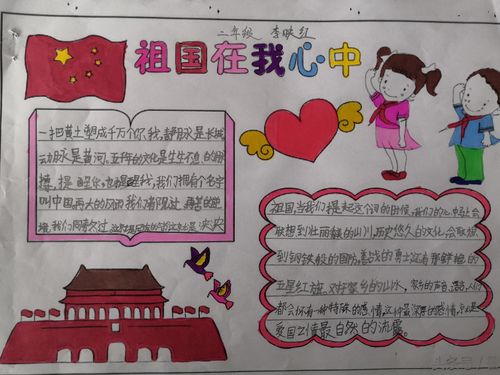 二年级 李映红
祖国在我心中
一把黄土塑成千万个你我,静脉是长城
动脉是黄河,五千年的文化是生生不息的脉
搏,提醒你也提醒我,我们拥有个名字
叫中国再大的风雨我们都见过,再苦的逆
境,我们同有过
祖国,当我们提起这个词的时候,我们的心中就会
联想到壮丽的山川,历史悠久的文化,会联想
到钢铁般的国防,善战的勇士还有那鲜艳的
五星红旗。对于家乡的山水,家乡的声音,人们
都会怀有一种特殊的感情,这种最深厚的感情,就是
爱国之情最自然的流露。